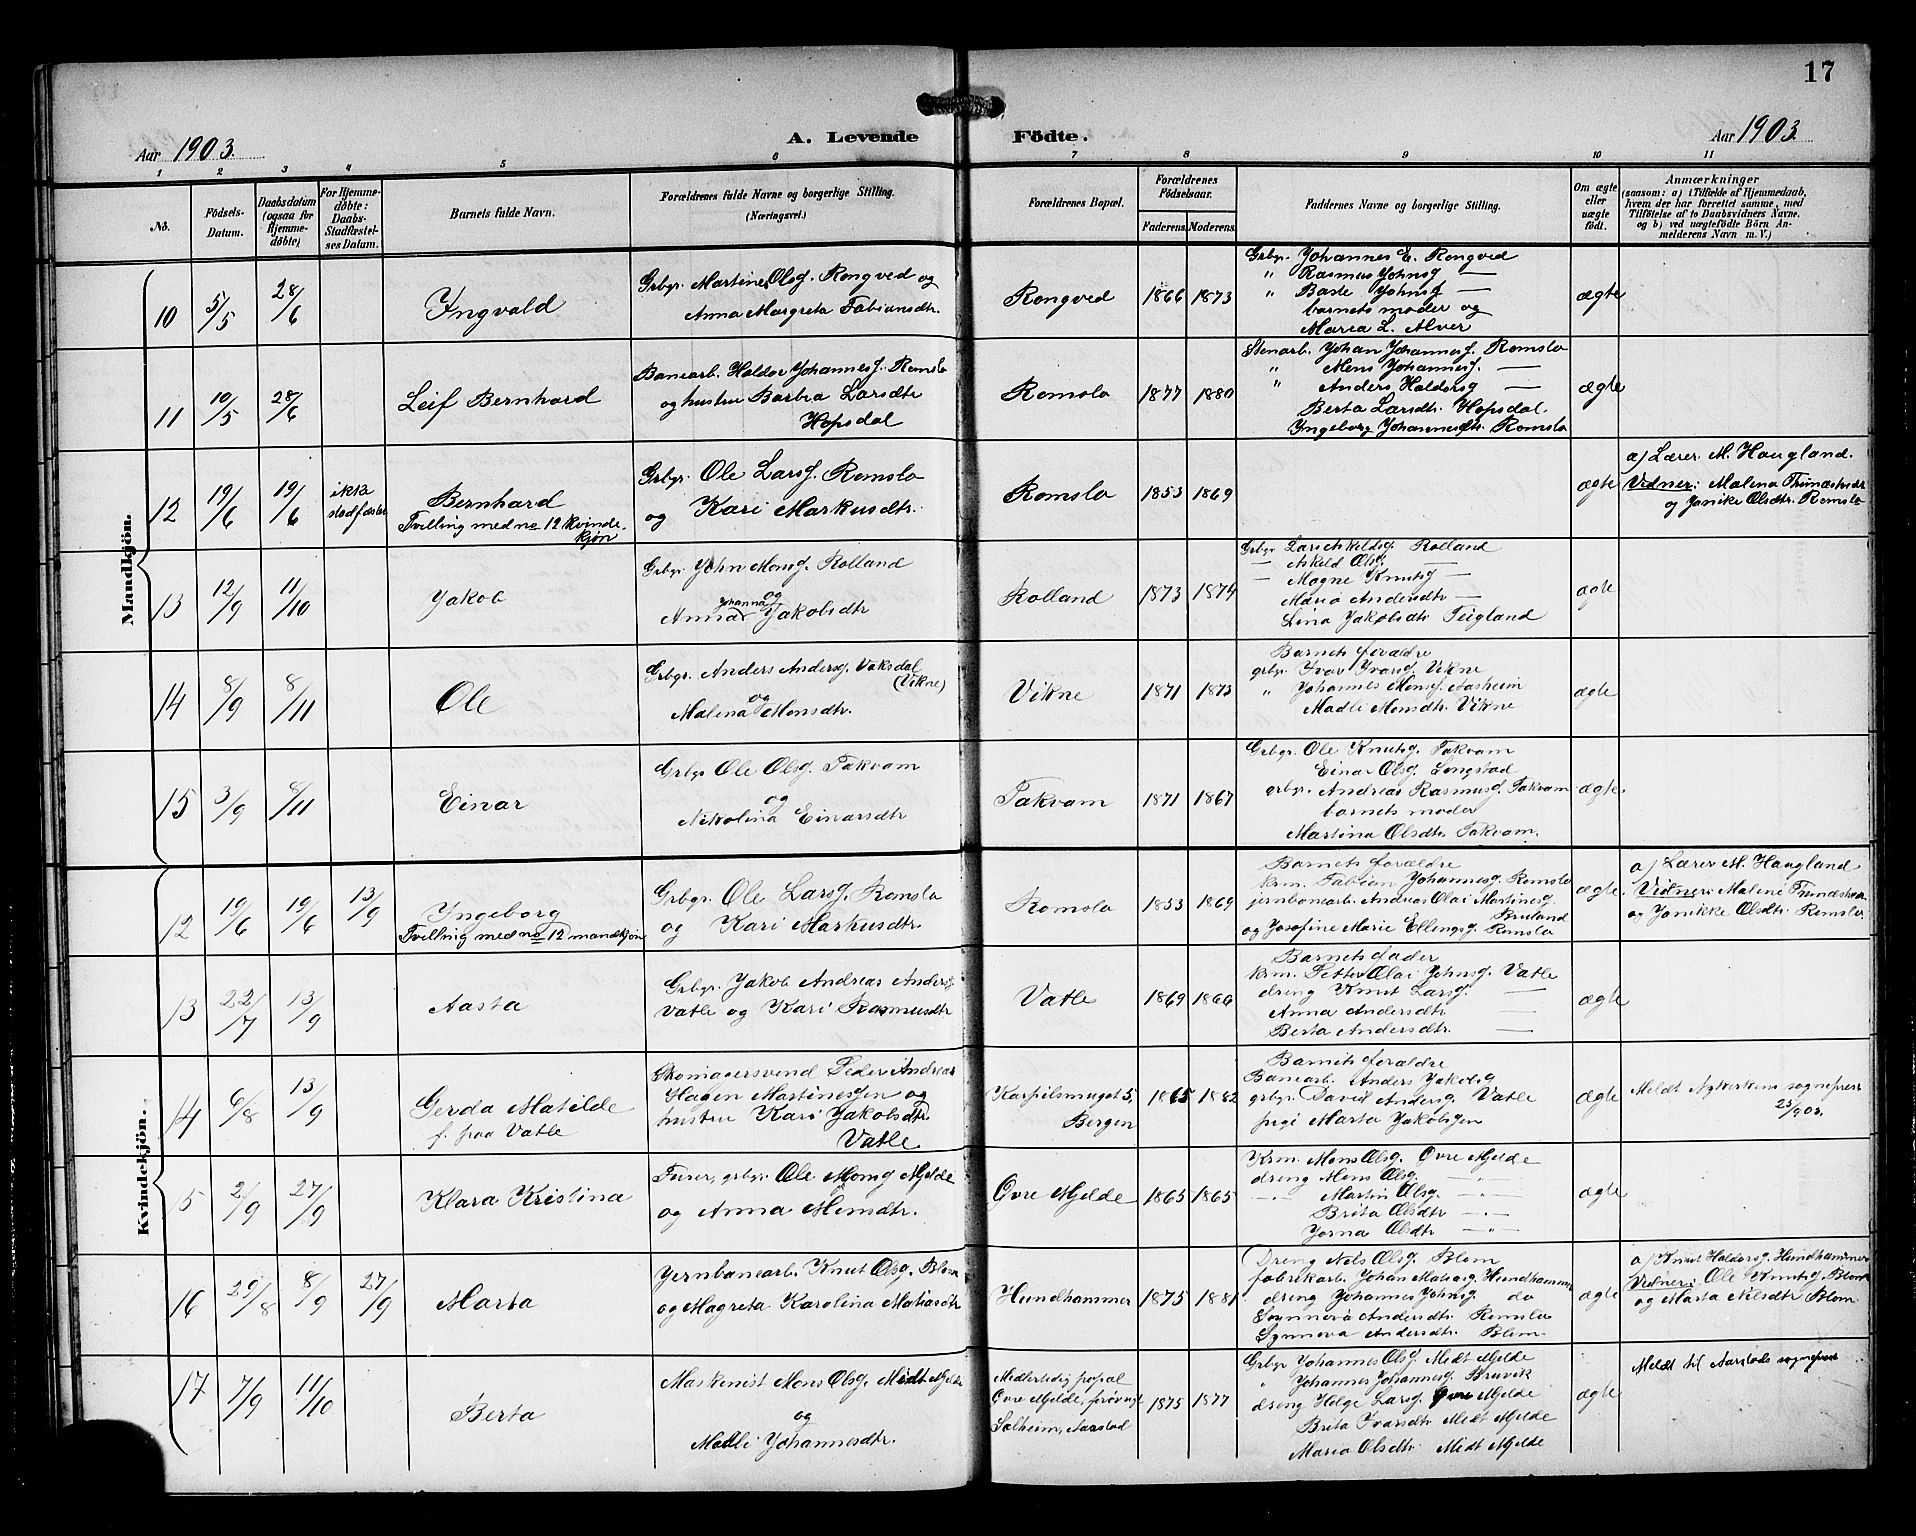 17
Aar 1903.
A. Levende Födte.
Aar 1903.
1 2 3 4 5 6 7 8 9 10 11
No.
Födsels-
Datum.
Daabsdatum
(ogsaa for
Hjemme-
døbte)
For Hjemme-
døbte:
Daabs-
Stadfæstel-
ses Datum.
Barnets fulde Navn.
Forældrenes fulde Navne og borgerlige Stilling.
(Næringsvei.)
Forældrenes Bopæl.
Forældrenes
Födselsaar.
Faderens.
Moderens.
Faddernes Navne og borgerlige Stilling.
Om ægte
eller
uægte
født.
Anmærkninger
(saasom: a) i Tilfælde af Hjemmedaab,
hvem der har forrettet samme, med
Tilføielse af to Daabsvidners Navne,
og b) ved uægtefödte Börn An-
melderens Navn m. V.)
Mandkjön.
10
5/5
28/6
Ingvald
Grbgr. Martines Olsg. Rongved og
Anna Margreta Fabiansdtr.
Rongved
1866
1873
Grbgr. Johannes E. Rongved
" Rasmus Johnsg —
" Baste Johnsg —
barnets moder og
Maria L. Alver
ægte
11
10/5
28/6
Leif Bernhard
Banearb. Haldor Johannesg. Romslo
og hustru Barbra Larsdtr
Hopsdal
Romslo
1877
1880
Stenarb. Johan Johannesg. Romslo
" Mens Johannesg. —
" Anders Haldorsg —
Berta Larsdtr. Hopsdal.
Ingeborg Johannesdtr. Romslo
ægte
12
19/6
19/6
ikke
stadfæstet
Bernhard
Tvilling med no 12 kvinde-
kjøn
Grbgr. Ole Larsg. Romslo
og Kari Markusdtr.
Romslo
1853
1869
ægte
a) Lærer M. Haugland.
Vidner: Malena
og Janike Olsdtr. Romslo
13
12/9
11/10
Jakob
Grbgr. John Monsg. Rolland
og
Johanna
Anna Jakobsdtr
Rolland
1873
1874
Grbgr. Lars Askeldsg. Rolland
— Askeld Olsg. —
— Magne Knutsg —
Maria Andersdtr —
Lina Jakobsdtr. Teigland
ægte
14
8/9
8/11
Ole
Grbgr. Anders Andersg. Vaksdal
(Vikne)
og
Malena Monsdtr.
Vikne
1871
1873
Barnets forældre
grbgr. Ivar Ivarsg. Vikne
" Johannes Monsg. Aasheim
Madli Monsdtr. Vikne
ægte
15
3/9
8/11
Einar
Grbgr Ole Olsg. Takvam
og
Nikolina Einarsdtr
Takvam
1871
1867
Grbgr. Ole Knutsg. Takvam
Einar Olsg. Langstad
grbgr. Andreas Rasmusg. Takvam
barnets moder
Martina Olsdtr. Takvam.
ægte.
Kvindekjön.
12
19/6
19/6
13/9
Ingeborg
Tvilling med no 12 mandkjøn
Grbgr. Ole Larsg. Romslo
og Kari Markusdtr.
Romslo
1853
1869
Barnets forældre
krm. Fabian Johannesg. Romslo
jernbanearb. Andreas Olai Martinesg.
Bruland
og Josefine Marie Ellingsg. Romslo
ægte
a) Lærer M. Haugland
Vidner: Malene
og Janikke Olsdtr. Romslo
13
22/7
13/9
Aasta
Grbgr. Jakob Andreas Andersg.
Vatle og Kari Rasmusdtr
Vatle
1869
1866
Barnets fader
krm. Petter Olai Johnsg. Vatle
dreng Knut Larsg. —
Anna Andersdtr —
Berta Andersdtr. —
ægte
14
6/8
13/9
Gerda Matilde
f. paa Vatle
Skomagersvend Peder Andreas
Hagen Martinesgen og
hustru Kari Jakobsdtr
Vatle
Karpilsmuget 5,
Bergen
1865
1882
Barnets forældre
Banearb. Anders Jakobsg
grbgr. David Andersg. Vatle
pige Marta Jakobsgen
ægte
Meldt Nykirkens sognepræst
25/9 03.
15
2/9
27/9
Klara Kristina
Furer, grbgr. Ole Monsg Mjelde
og Anna Monsdtr.
Øvre Mjelde
1865
1865
Krm. Mons Olsg. Øvre Mjelde
dreng Mons Olsg. —
— Martin Olsg. —
Brita Olsdtr —
Jorna Olsdtr —
ægte
16
29/8
8/9
27/9
Marta
Jernbanearb. Knut Olsg. Blom
og Magreta Karolina Matiasdtr
Hundhammer
1875
1881
Dreng Nils Olsg. Blom
fabrikarb. Johan Matiasg. Hundhammer
dreng Johannes Johnsg do
Synnøva Andersdtr Romslo
Synnøva Andersdtr. Blom.
ægte
a) Knut Haldorsg. Hundhammer
Vidner: Ole Knutsg. Blom
og Marta Nilsdtr Blom
17
7/9
11/10
Berta
Maskinist Mons Olsg. Midt Mjelde
og
Madli Johannesdtr.
Midlertidig popal
Øvre Mjelde,
Solheim, Aarstad
1875
1877
Grbgr Johannes Olsg. Midt Mjelde
" Johannes Johannesg. Bruvik
dreng Helge Larsg. Øvre Mjelde
Brita Ivarsdtr. Midt Mjelde
Maria Olsdtr. Midt Mjelde
ægte
Meldt til Aarstads sognepræst